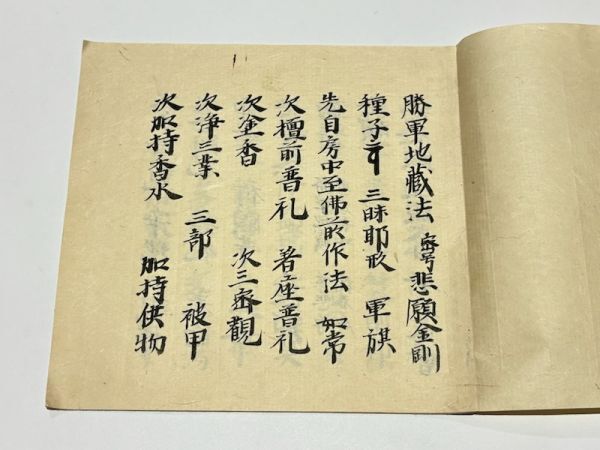 勝軍地蔵法 密号 悲願金剛
種子 三昧耶形 軍旗
先自房中至佛前作法 如常
次壇前普礼 着座普礼
次塗香 次三密觀
次浄三業 三部 被甲
次加持香水 加持供物